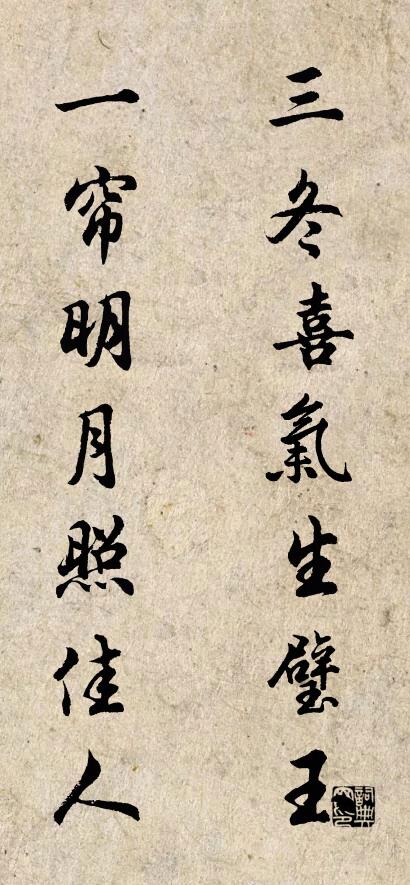 三冬喜氣生璧王
一帘明月照佳人